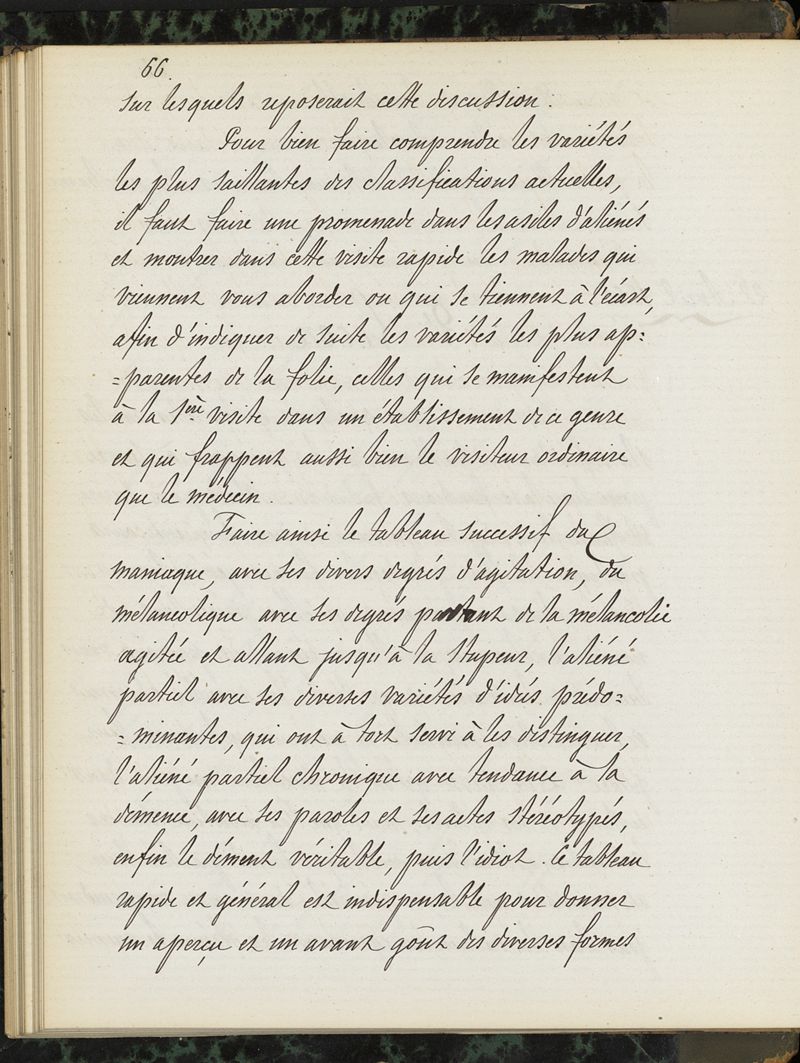 66.
sur lesquels reposerait cette discussion.
Pour bien faire comprendre les variétés
les plus saillantes des classifications actuelles,
il faut faire une promenade dans les asiles d'aliénés
et montrer dans cette visite rapide les malades qui
viennent vous aborder ou qui se tiennent à l'écart,
afin d'indiquer de suite les variétés les plus ap=
=parentes de la folie, celles qui se manifestent
à la 1ère visite dans un établissement de ce genre
et qui frappent aussi bien le visiteur ordinaire
que le médecin.
Faire ainsi le tableau successif du
maniaque, avec ses divers degrés d'agitation, du
mélancolique avec ses degrés partant de la mélancolie
agitée et allant jusqu'à la stupeur, l'aliéné
partiel avec ses diverses variétés d'idées prédo=
=minantes, qui ont à tort servi à les distinguer,
l'aliéné partiel chronique avec tendance à la
démence, avec ses paroles et ses actes stéréotypés,
enfin le dément véritable, puis l'idiot. Ce tableau
rapide et général est indispensable pour donner
un aperçu et un avant goût des diverses formes